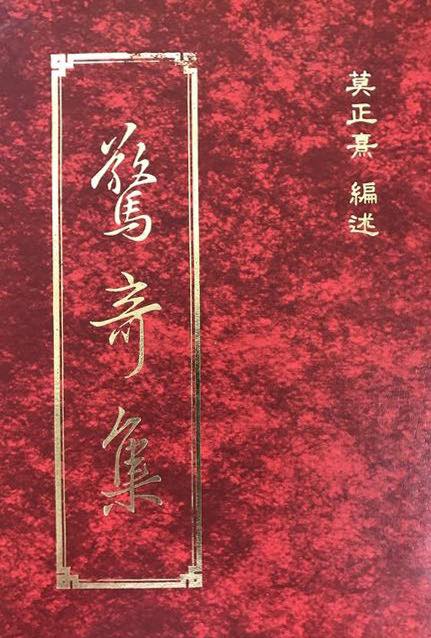 莫正熹 編述
驚奇集